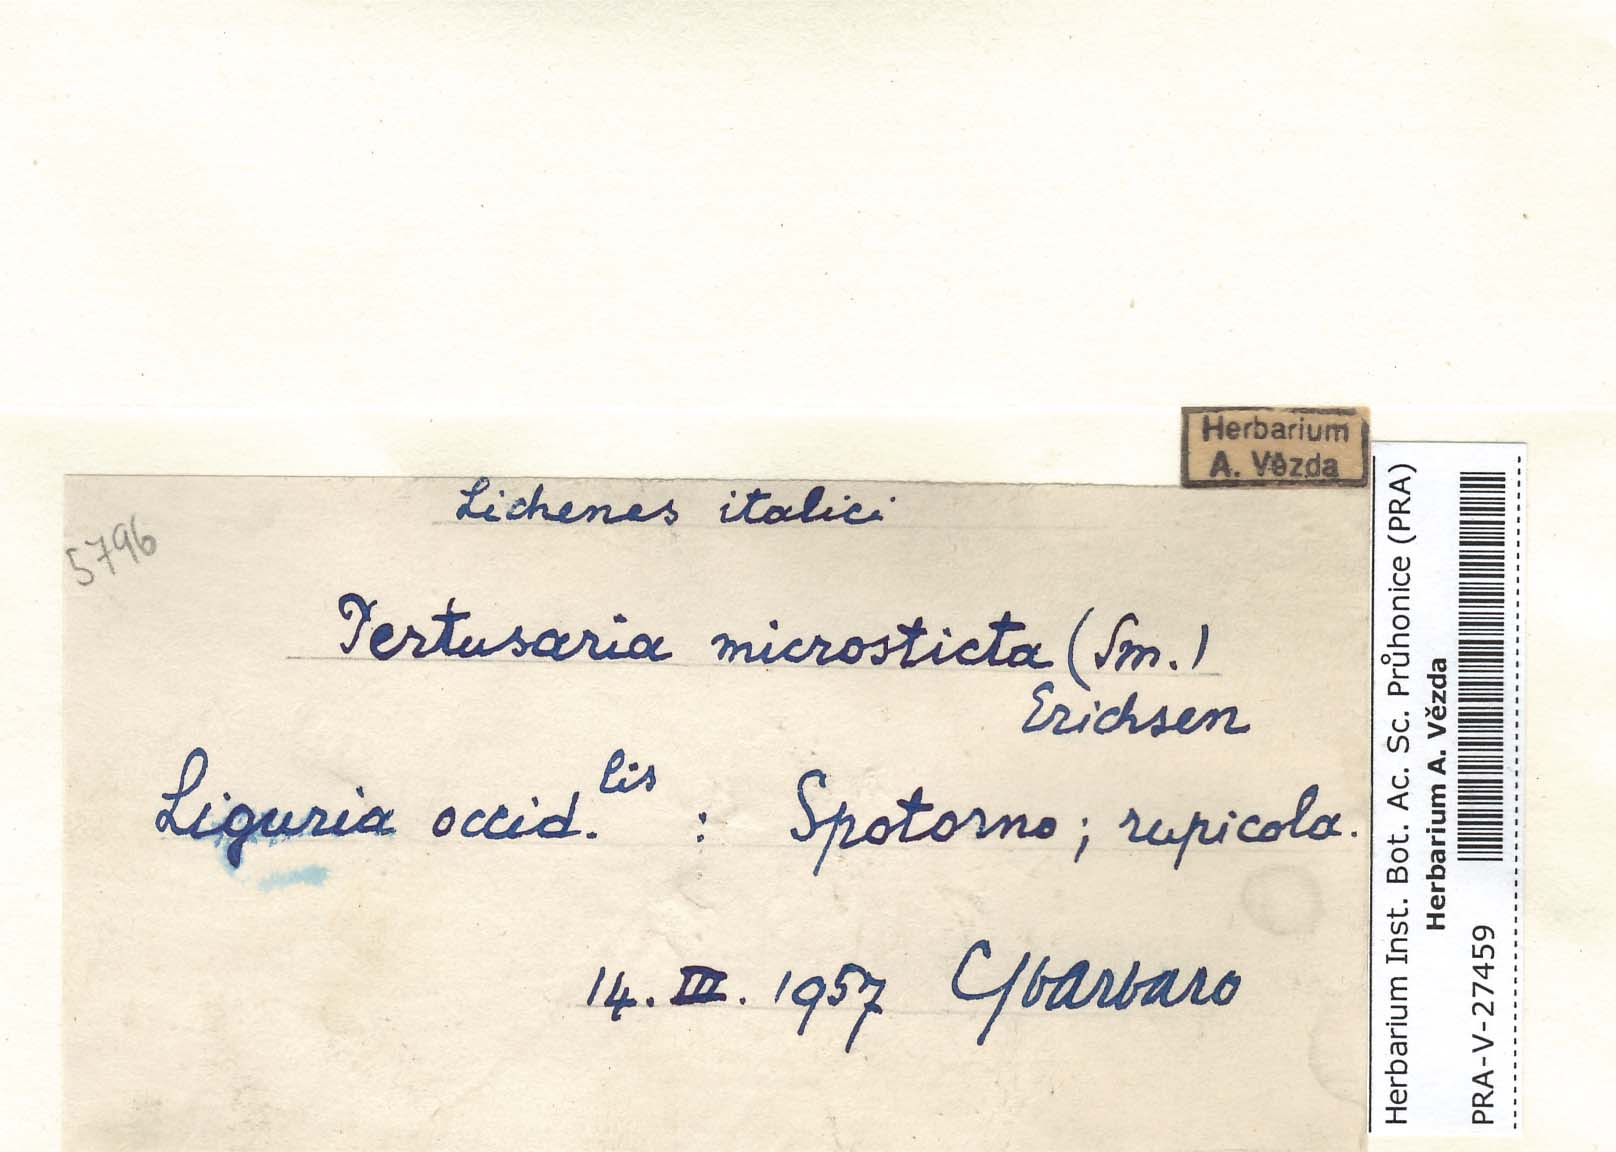 Herbarium
A. Vězda
Lichenes italici
5796
Pertusaria microsticta (Sm.)
Erichsen
Liguria occid.lis : Spotorno; rupicola.
14. III. 1957 CSbarbaro
Herbarium Inst. Bot. Ac. Sc. Průhonice (PRA)
Herbarium A. Vězda
PRA-V-27459